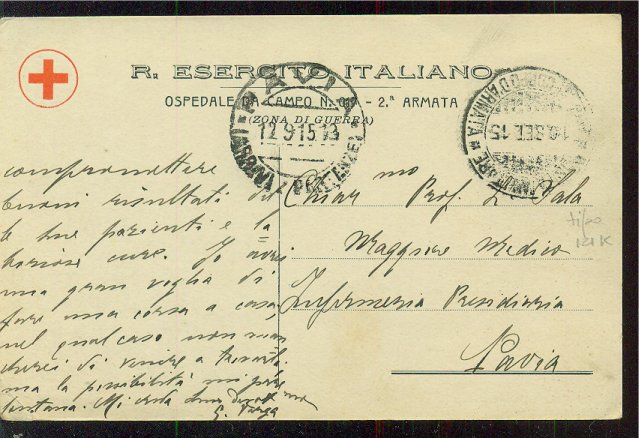 R. ESERCITO ITALIANO
OSPEDALE DA CAMPO N. - 2.ª ARMATA
(ZONA DI GUERRA)
PAVIA
12.9.15
(ARRIVI E PARTENZE)
SEP 15
D'ARMATA
compromettere
buoni risultati del
le tue pazienti e la
boriose cure. Io avrei
una gran voglia di
fare una corsa a casa,
nel qual caso non man
cherei di venire a trovarla
ma la possibilità mi pare
lontana. Mi creda
Chiar mo Prof. L. Sala
Maggiore Medico
Infermeria Presidiaria
Pavia